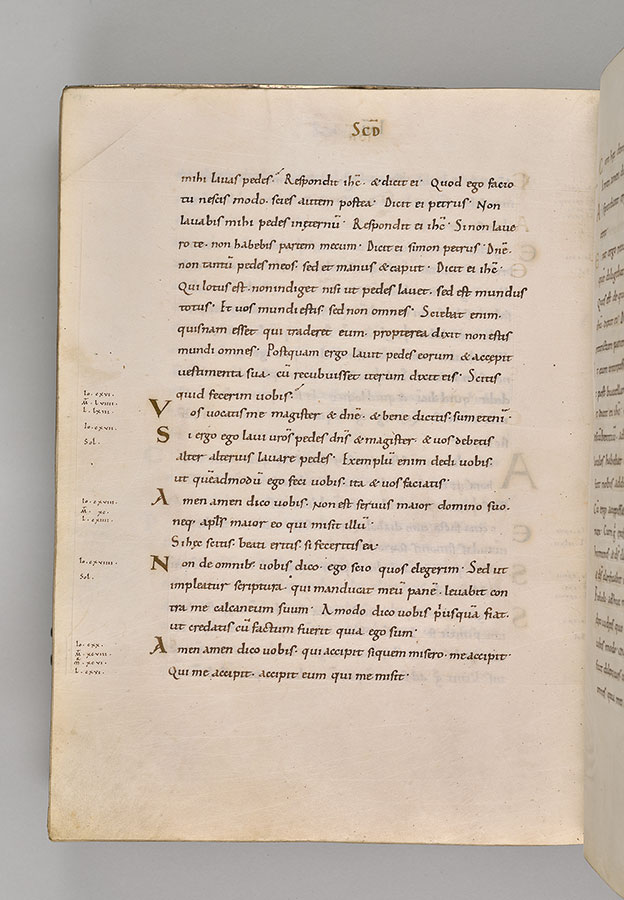 SCD̄
mihi lauas pedes. Respondit ih̄c. & dicit ei. Quod ego facio
tu nescis modo. scies autem postea. Dicit ei petrus. Non
lauabis mihi pedes ineternū. Respondit ei ih̄c. Si non laue
ro te. non habebis partem mecum. Dicit ei simon petrus. Dn̄e.
non tantū pedes meos. sed et manus & caput. Dicit ei ih̄c.
Qui lotus est. non indiget nisi ut pedes lauet. sed est mundus
totus. Et uos mundi estis. sed non omnes. Sciebat enim.
quisnam esset qui traderet eum. propterea dixit non estis
mundi omnes. Postquam ergo lauit pedes eorum & accepit
uestimenta sua. cū recubuisset iterum dixit eis. Scitis
quid fecerim uobis.
Io. cxvi.
m̄. lviii.
l. lxiii.
Vos uocatis me magister & dn̄e. & bene dicitis. sum etenī.
Io. cxvii.
Sol.
Si ergo ego laui ur̄os pedes dn̄s & magister. & uos debetis
alter alterius lauare pedes. Exemplū enim dedi uobis.
ut quēadmodū ego feci uobis. ita & uos faciatis.
Io. cxviii.
m̄. xc.
L. ciiii.
Amen amen dico uobis. Non est seruus maior domino suo.
neq. apl̄s maior eo qui misit illū.
Si hęc scitis. beati eritis si feceritis ea.
Io. cxviiii.
Sol.
Non de omnib. uobis dico. ego scio quos elegerim. Sed ut
impleatur scriptura. qui manducat meū panē. leuabit con
tra me calcaneum suum. A modo dico uobis p̄usquā fiat.
ut credatis cū factum fuerit quia ego sum.
Io. cxx.
m̄. xcviii.
m̄. xcvi.
L. cxvi.
Amen amen dico uobis. qui accipit siquem misero. me accipit.
Qui me accipit. accipit eum qui me misit.